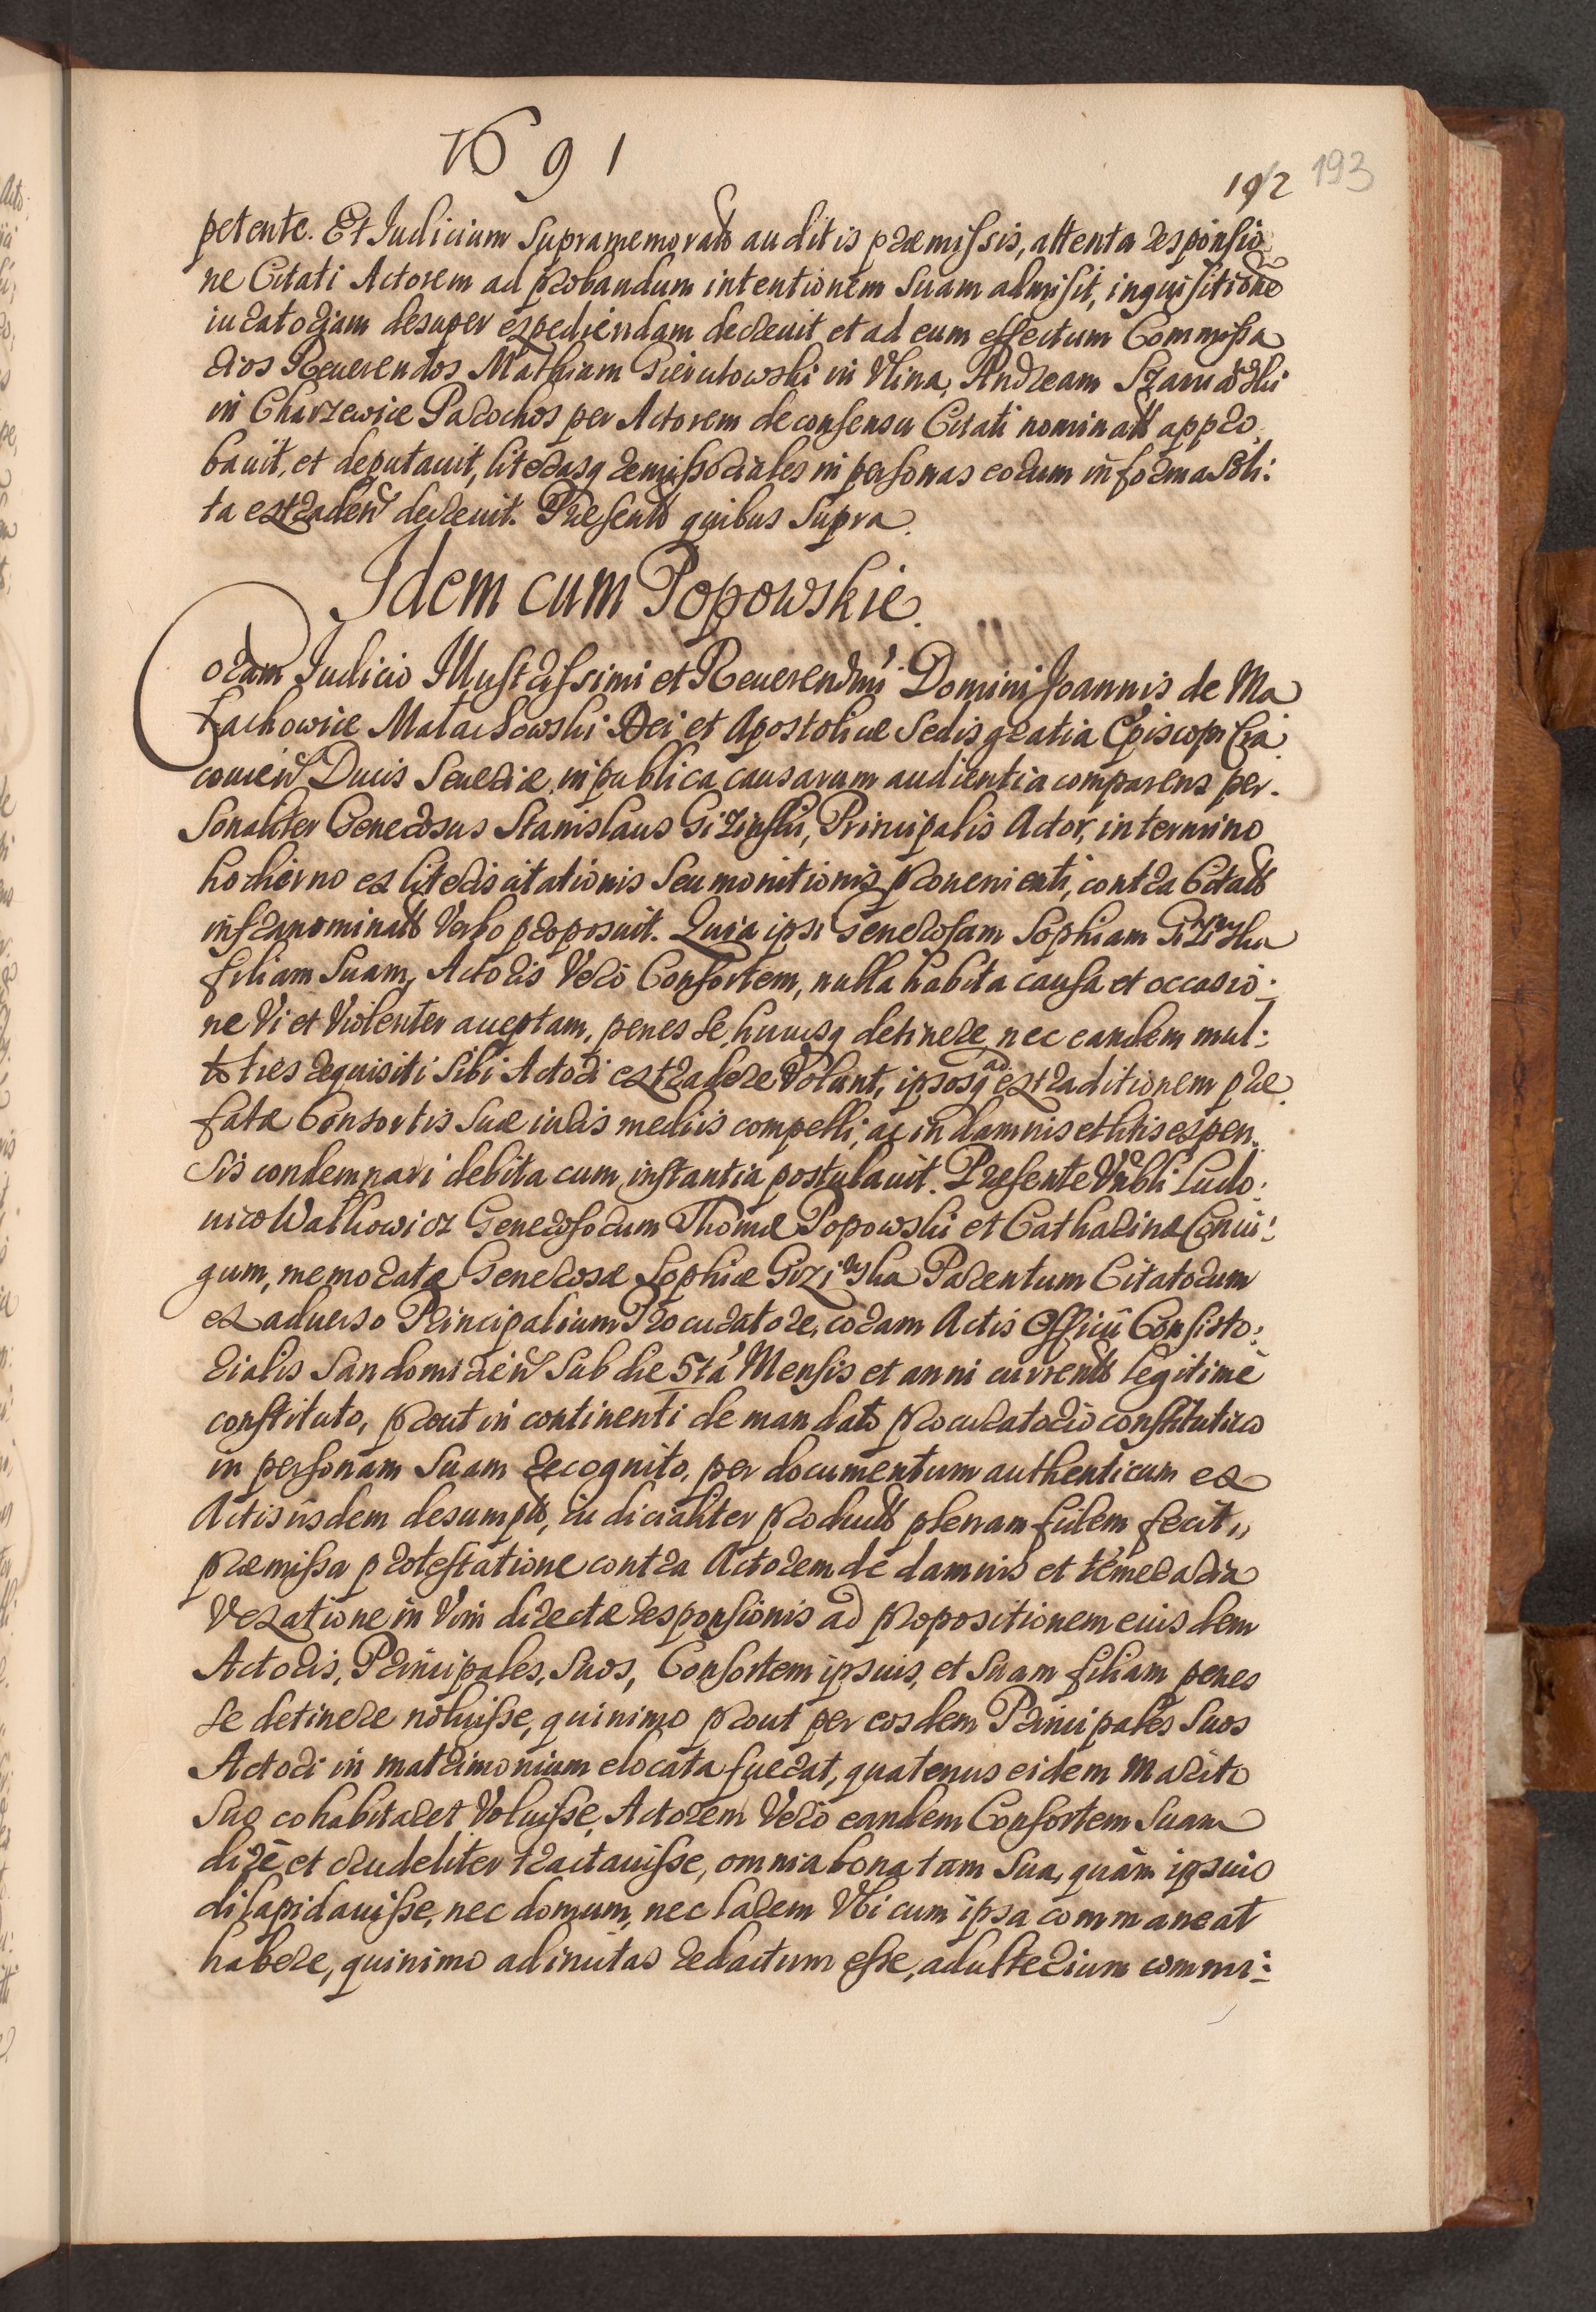 1691
192 193
petente. Et Iudicium Supramemorato auditis præmissis, attenta responsio
ne Citati Actorem ad probandum intentionem Suam admisit, inquisitione
iuratoriam desuper expediendam decreuit et ad eum effectum Commissa
rios Reuerendos Mathiam in Vlina, Andream
in Charzewice Parochos per Actorem de consensu Citati nominatos appro
bauit, et deputauit, literasq remissoriales in personas eorum in forma Soli:
ta extraden decreuit. Presentibus quibus Supra.
Idem cum Popowskie.
Coram Iudicio Illustrissimi et Reuerendmi Domini Joannis de Ma
łachowice Małachowski Dei et Apostolicæ Sedis gratia Episcopi Cra
couien Ducis Seueriæ, in publica causarum audientia comparens per.
Sonaliter Generosus Stanislaus Gizinski, Principalis Actor, in termino
hodierno ex literis citationis Seu monitionis prouenienti, contra Citatos
infranominatos Verbo proposuit. Quia ipsi Generosam Sophiam Gizinska
filiam Suam, Actoris Vero Consortem, nulla habita causa et occasio:
ne Vi et Violenter acceptam, penes se hucusq detinere nec eandem mul:
toties requisiti Sibi Actori extradere Volunt, ipsosq ad extraditionem præ
fatæ Consortis Suæ iuris mediis compelli, ac in damnis et litis expen.
Sis condemnari debita cum instantia postulauit. Presente Nobli Ludo:
uico Walkowicz Generosorum Thomæ Popowski et Catharinæ Coniu:
gum, memoratæ Generosæ Sophiæ Gizinska Parentum Citatorum
ex aduerso Principalium Procuratore, coram Actis Officii Consisto:
rialis Sandomirien Sub die 5ta Mensis et anni currentis legitimè
constituto, prout in continenti de mandato procuratorio constitutiuo
in personam Suam recognito, per documentum authenticum ex
Actis iisdem desumpto, iudicialiter producto plenam fidem fecit,,
præmissa protestatione contra Actorem de damnis et temeraria
Vexatione in Vim directæ responsionis ad propositionem eiusdem
Actoris, Principales, Suos, Consortem ipsius, et Suam filiam penes
Se detinere noluisse, quinimo prout per eosdem Principales Suos
Actori in matrimonium elocata fuerat, quatenus eidem Marito
Suo cohabitaret Voluisse, Actorem Verò eandem Consortem Suam
dirè, et crudeliter tractauisse, omnia bona tam Sua, quàm ipsius
dilapidauisse, nec domum, nec larem Vbi cum ipsa commaneat
habere, quinimo ad incitas redactum esse, adulterium commi: